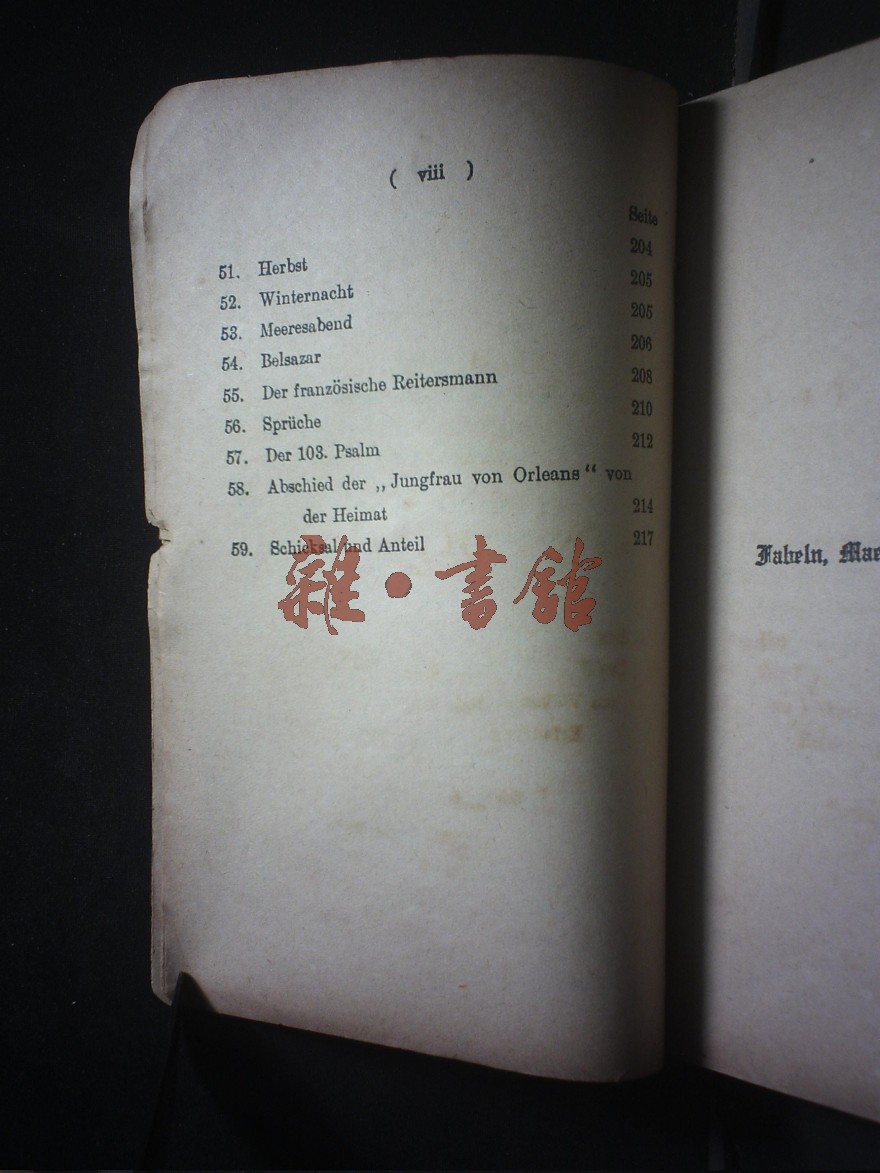 ( viii )
Seite
51. Herbst 204
52. Winternacht 205
53. Meeresabend 205
54. Belsazar 206
55. Der französische Reitersmann 208
56. Sprüche 210
57. Der 103. Psalm 212
58. Abschied der „Jungfrau von Orleans“ von
der Heimat 214
59. Schicksal und Anteil 217
雜•書館
Fabeln, Mae